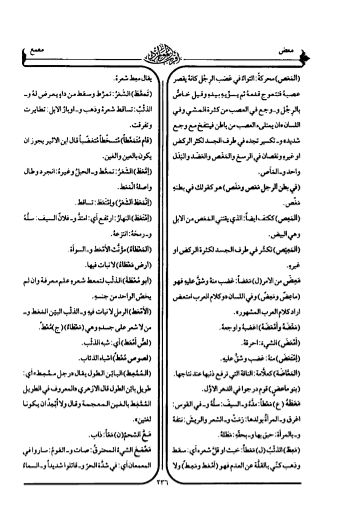 معض
معمع
(المَعَص) محركةً: التواءٌ في عصب الرِجْل كأنّه يقصر
عصبه فتتعوج قدمهُ ثم يسوّيه بيدهِ وقيل خاصٌّ
بالرِجْل و- وجع في العصب من كثرة المشي وفي
اللسان «أن يمتلىء العصب من باطن فينتفخ مع وجع
شديد» و- تكسير تجده في طرف الجسد لكثرة الركض
او غيره ونقصان في الرسغ
واحد و- المأص.
(في بطن الرجل مَعَص ومَغَص) هو كقولك في بطنهِ
مَغْص.
(المَعِص) ككتف ايضاً: الذي يقتني المعص من الابل
وهي البيض.
(المَعِيْص) تكسُّر في طرف الجسد لكثرة الركض او
غيره.
مَعِضَ من الامر (ل) مَعَضاً: غضب منهُ وشقّ عليهِ فهو
(ماعِضٌ ومَعِضٌ) وفي اللسان «وكلام العرب امتعض
اراد كلام العرب المشهور».
(مَعَّضَهُ وأَمْعَضَهُ) اغضبهُ واوجعهُ.
(أَمْعَضَ) الشيءَ: احرقهُ.
(إِمْتَعَضَ) منهُ: غضب وشقّ عليهِ.
(المَعَّاضَة) كعلاّمة: الناقة التي ترفع ذنبها عند نتاجها.
(بنو ماعِضٍ) قوم درجوا في الدهر الاوّل.
مَعَطَهُ (ع) مَعْطاً: مدّهُ و- السيفَ: سلّهُ و- في القوس:
اغرق و- المرأةُ بولدها: رمت و- الشعر والريش: نتفهُ
و- بالمرأة: حبق بها و- بحقّهِ: مطلهُ.
(مَعِطَ) الذئبُ (ل) مَعَطاً: خبث او قلّ شعره اي: سقط
وذهب كُنّي بالقلّة عن العدم فهو (أَمْعَط ومَعِط) ولا
يقال معط شعرهُ.
(تَمَعَّطَ) الشَعْرُ: تمرّط وسقط من داءٍ يعرض لهُ و-
الذئبُ: تساقط شعرهُ وذهب و- اوبارُ الابل: تطايرت
وتفرقت.
(قام مُتَمَعِّطاً) مُتسخّطاً متغضّباً قال ابن الاثير يجوز ان
يكون بالعين والغين.
(امّعَط) الشَعْرُ: تمعّط و- الحبلُ وغيرهُ: انجرد وطال
واصلهُ انمعط.
(امّعَطَ) الشَعْرُ) وامْتَعَطَ: تساقط.
(إِمْتَعَطَ) النهارُ: ارتفع اي: امتدّ و- فلانٌ السيف: سلّهُ
و- رمحَهُ: انتزعهُ.
(المَعْطاءُ) مؤنث الأَمْعَط و- السوأة.
(ارض مَعْطاءُ) لا نبات فيها.
(ابو مُعْطَة) الذئب لتمعّط شعرهِ علم معرفة وان لم
يخصّ الواحد من جنسهِ.
(الأَمْعَط) الرمل لا نبات فيهِ و- الذئب البيّن المَعَط و-
من لا شعر على جسده وهي (مَعْطاءُ) (ج) مُعْطٌ.
(لصٌّ أَمْعَطُ) اي: شبه الذئب.
(لصوص مُعْطٌ) اشباه الذئاب.
(المُمَّعِط) البائن الطول يقال «رجل مُمَّعِط» اي:
طويل بائن الطول قال الازهري «المعروف في الطويل
المُمَّغِط بالغين المعجمة وقال ولا أبعد أن يكونا
لغتين».
مَعَّ الشحمُ (ن) مَعّاً: ذاب.
مَعْمَعَ الشيءُ المحترقُ: صات و- القومُ: ساروا في
المعمعان اي: في شدّة الحرّ و- قاتلوا شديداً و- السماءُ
٢٣٦